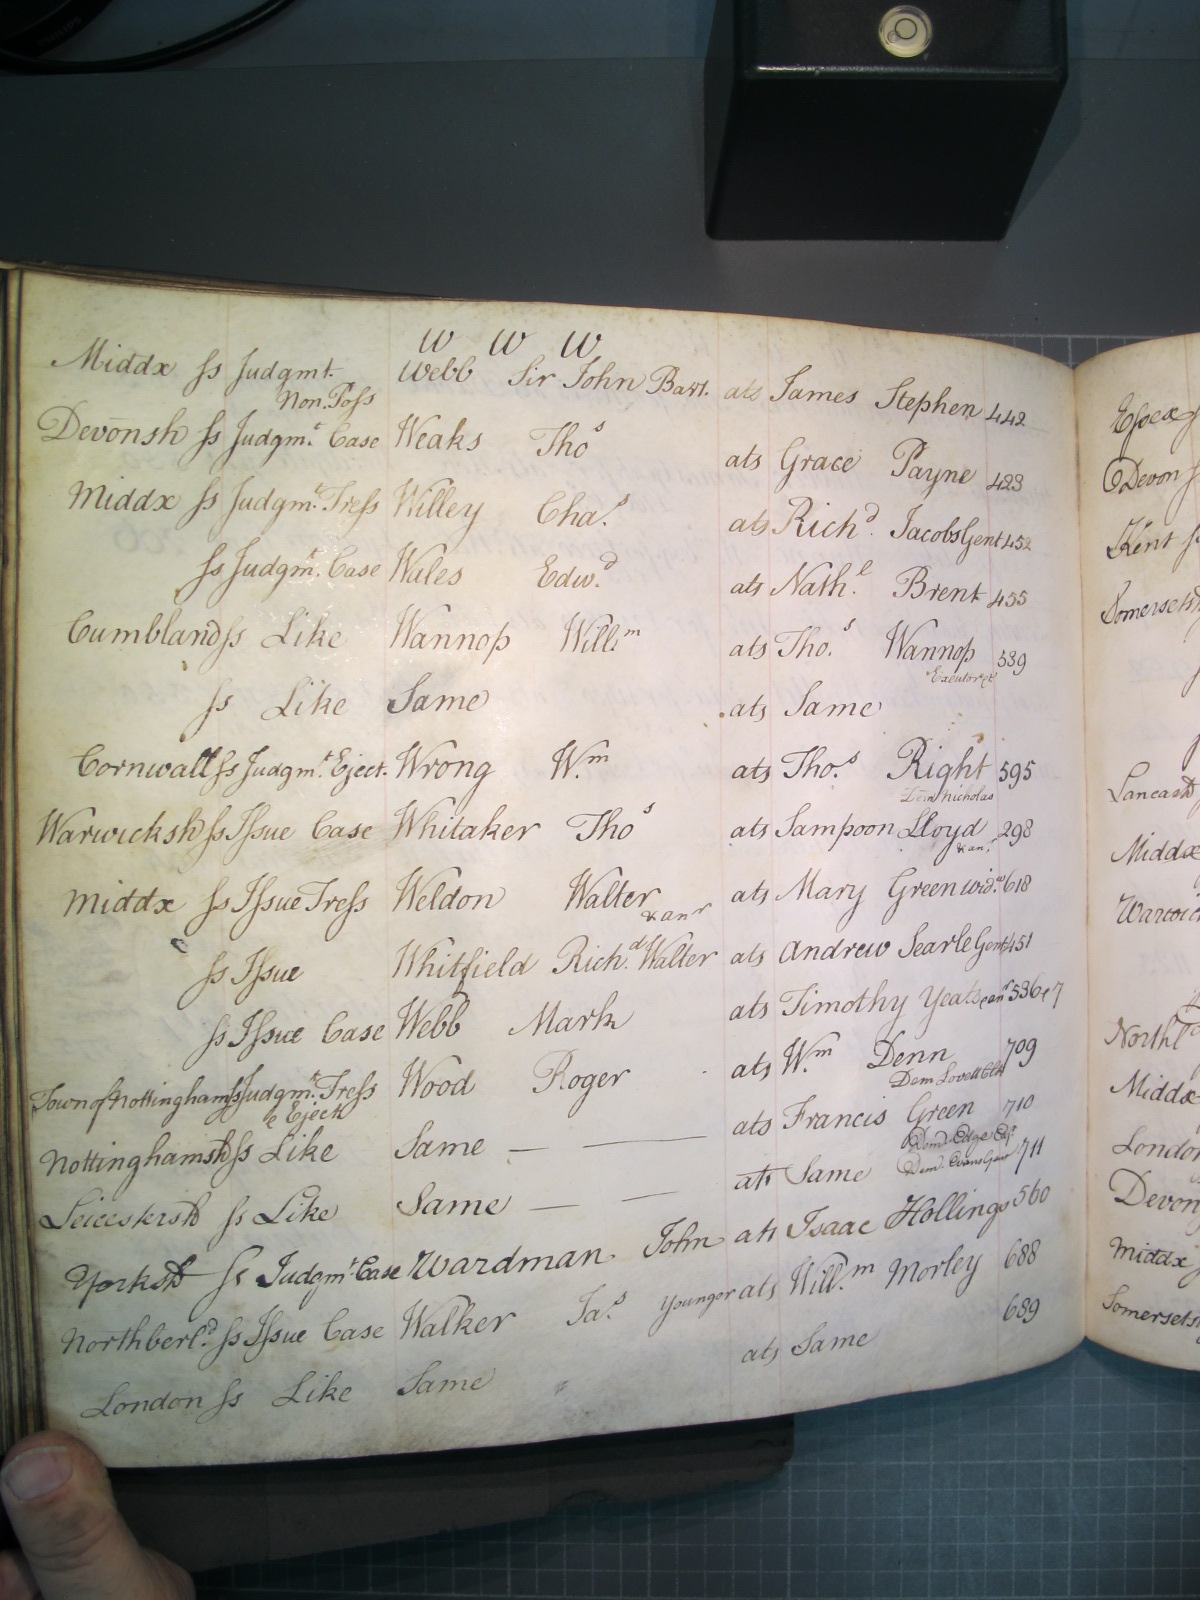 W W W
Middx ss Judgmt. Non. Poss Webb Sir John Bart. ats James Stephen 442
Devonsh ss Judgm.t Case Weaks Thos ats Grace Payne 423
Middx ss Judgm.t Tress Willey Cha.s ats Rich.d Jacobs Gent 452
ss Judgm.t Case Wales Edw.d ats Nath.l Brent 455
Cumbland ss Like Wannop Will.m ats Tho.s Wannop Executor &c 539
ss Like Same ats Same
Cornwall ss Judgm.t Eject. Wrong W.m ats Tho.s Right Dem Nicholas 595
Warwicksh ss Issue Case Whitaker Thos ats Sampson Lloyd & an.r 298
Middx ss Issue Tress Weldon Walter & anr ats Mary Green wid.w 618
ss Issue Whitfield Rich.d Walter ats Andrew Searle Gent 451
ss Issue Case Webb Mark ats Timothy Yeats & an.r 536 & 7
Town of Nottingham ss Judgm.t Tress & Eject Wood Roger ats W.m Denn Dem Lovett Clk 709
Nottinghamsh ss Like Same — ats Francis Green Dem.d Edge Esq.r 710
Leicestersh ss Like Same — ats Same Dem. Evans Gent 711
Yorksh ss Judgm.t Case Wardman John ats Isaac Hollings 560
Northberl.d ss Issue Case Walker Ja.s Younger ats Will.m Morley 688
London ss Like Same ats Same 689
Essex
Devon
Kent
Somersetsh
Lancash
Middx
Warwick
North
Middx
London
Devon
Middx
Somersets